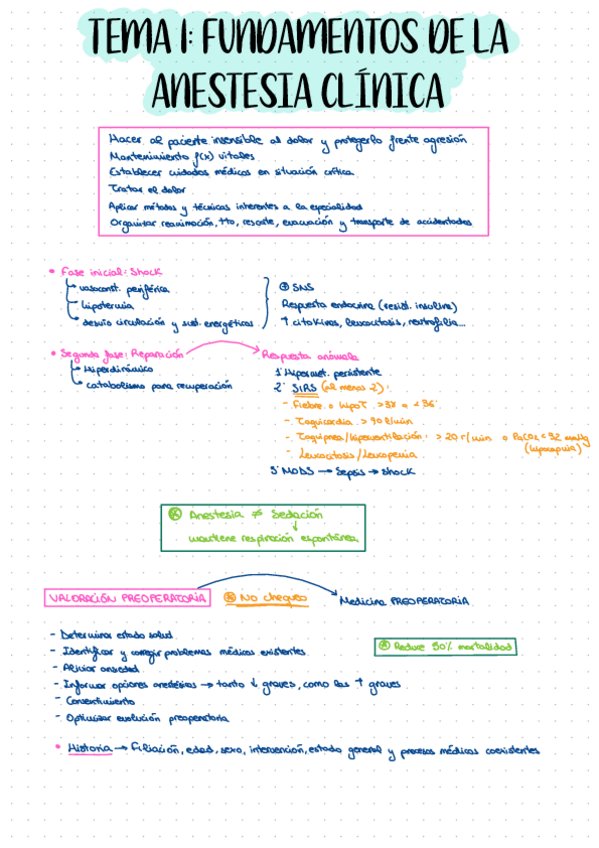 TEMA 1: FUNDAMENTOS DE LA
ANESTESIA CLÍNICA
Hacer al paciente insensible al dolor y protegerlo frente agresión
Mantenimiento f(x) vitales
Establecer cuidados médicos en situación crítica
Tratar el dolor
Aplicar métodos y técnicas inherentes a la especialidad
Organizar reanimación, tto, rescate, evacuación y transporte de accidentados
• Fase inicial: Shock
vasoconst. periférica
hipotermia
desvío circulación y sust. energéticas
⊕ SNS
Respuesta endocrina (resist. insulina)
↑ citokinas, leucocitosis, neutrofilia...
• Segunda fase: Reparación
Hiperdinámico
catabolismo para recuperación
Respuesta anómala
1' Hipermet. persistente
2' SIRS (al menos 2):
- Fiebre o hipoT >38 o <36
- Taquicardia > 90 l/min
- Taquipnea/hiperventilación: > 20 r/min o PaCO2 < 32 mmHg
(hipocapnia)
- Leucocitosis/Leucopenia
3' MODS → Sepsis → Shock
Anestesia ≠ Sedación
↓
mantiene respiración espontánea
VALORACIÓN PREOPERATORIA
No chequeo
Medicina PREOPERATORIA
- Determinar estado salud
- Identificar y corregir problemas médicos existentes
- Aliviar ansiedad
- Informar opciones anestésicas → tanto ↓ graves, como las ↑ graves
- Consentimiento
- Optimizar evolución preoperatoria
Reduce 50% mortalidad
• Historia → Filiación, edad, sexo, intervención, estado general y procesos médicos coexistentes